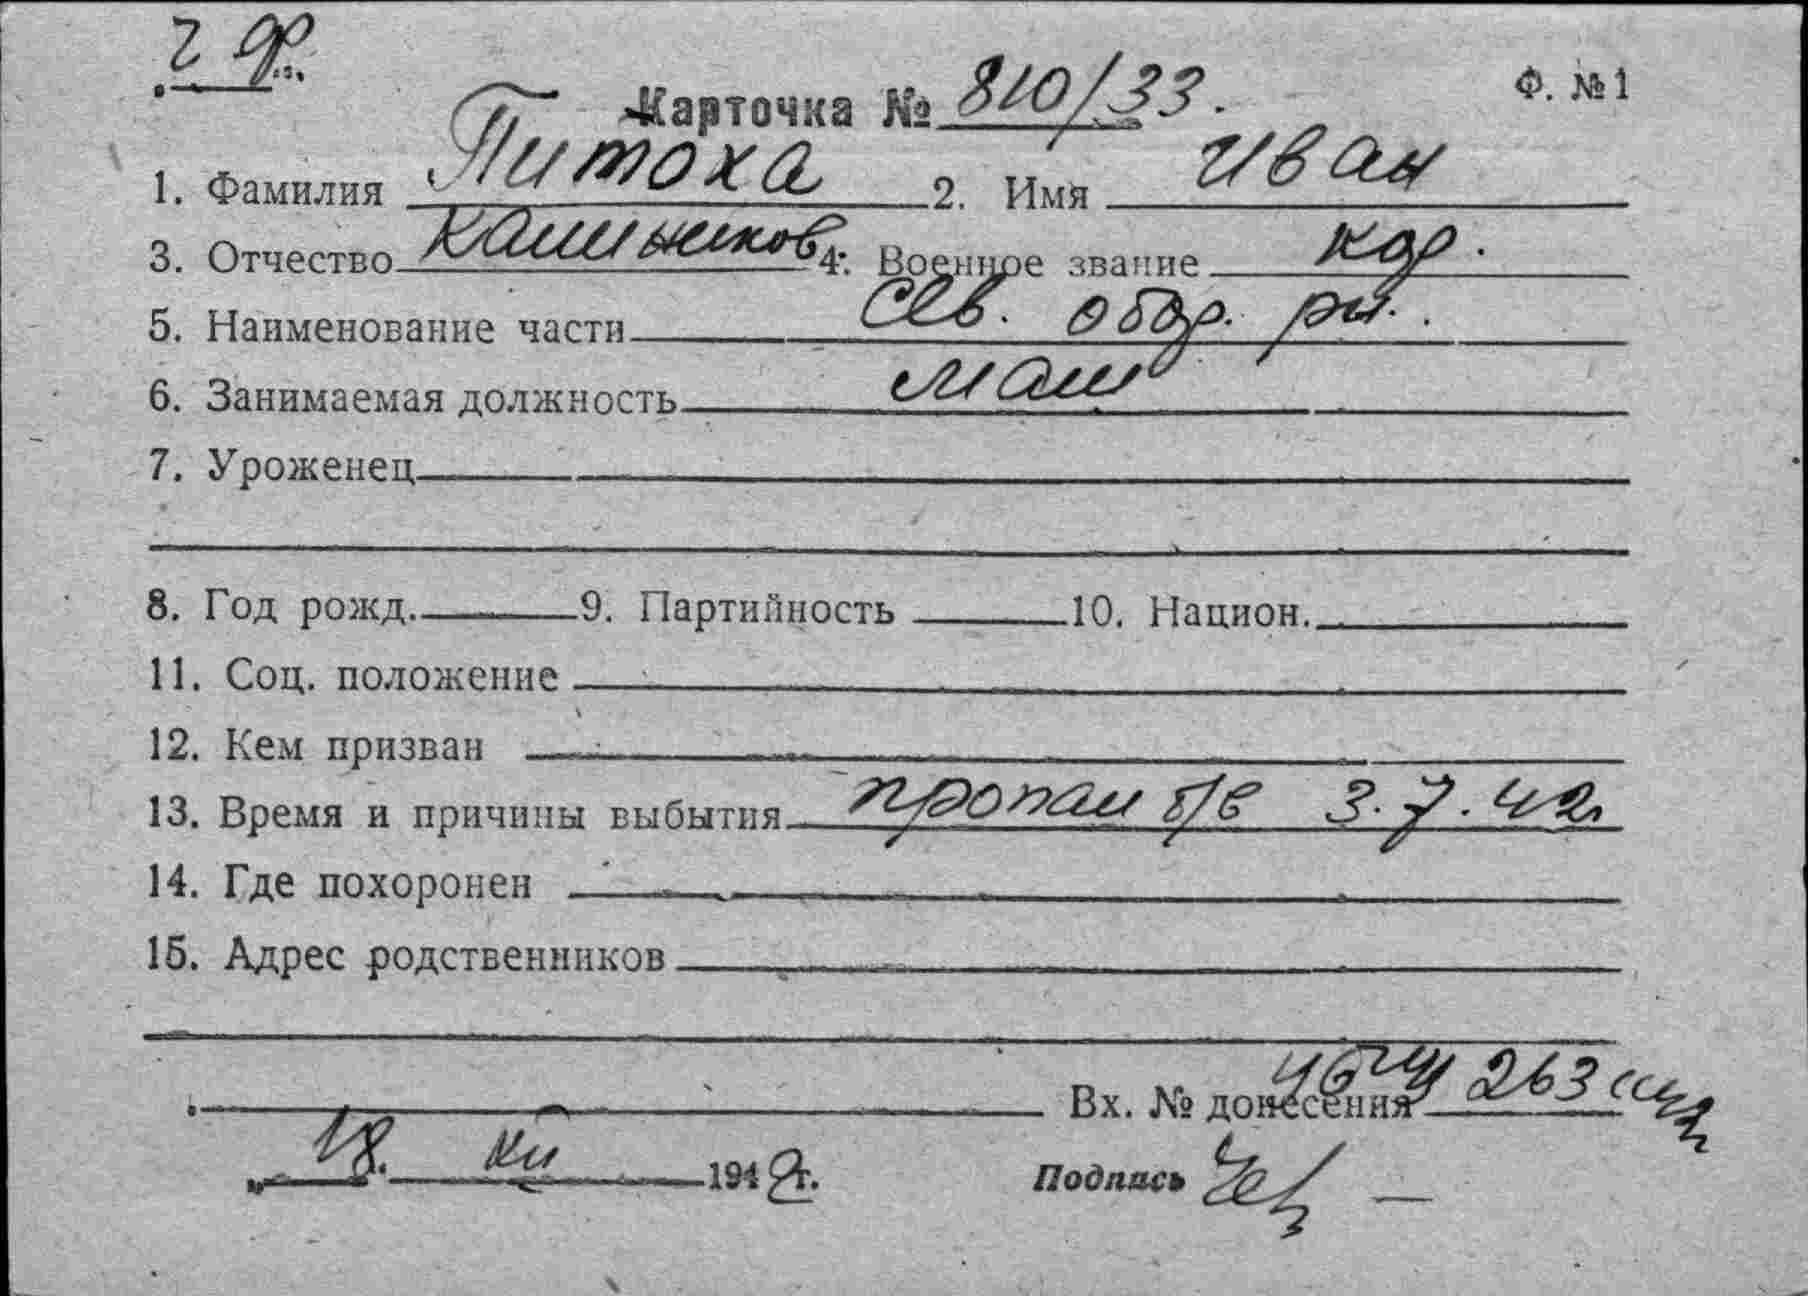 Ф. №1
Карточка № 810/33.
1. Фамилия Питоха 2. Имя Иван
3. Отчество 4. Военное звание кдр.
5. Наименование части Сев. обор. рн.
6. Занимаемая должность маш
7. Уроженец
8. Год рожд. 9. Партийность 10. Национ.
11. Соц. положение
12. Кем призван
13. Время и причины выбытия пропал б/в 3.7.42
14. Где похоронен
15. Адрес родственников
Вх. № донесения 263
18. 1942г.
Подпись